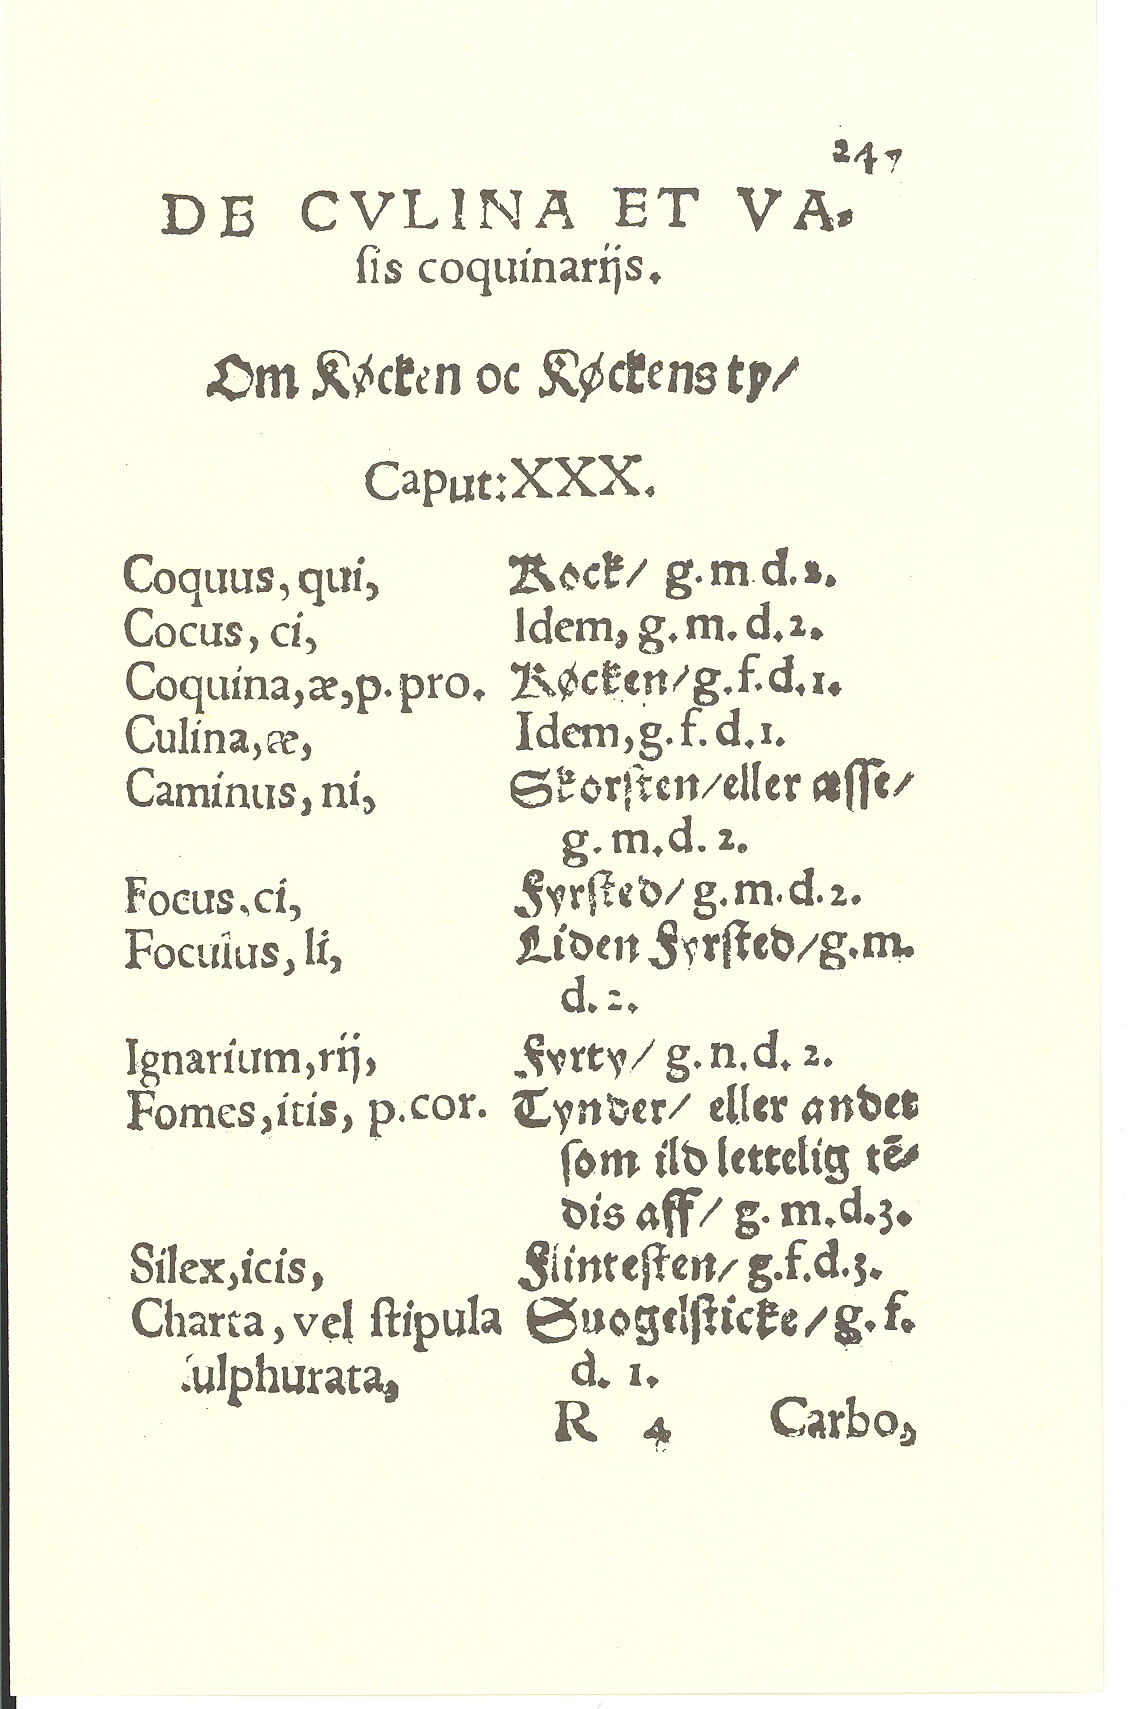 247
DE CVLINA ET VA-
ſis coquinarijs.
Om Køcken oc Køckens ty/
Caput: XXX.
Coquus, qui, Kock/ g. m d. 2.
Cocus, ci, Idem, g. m. d. 2.
Coquina, æ, p. pro. Køcken/ g. f. d. 1.
Culina, æ, Idem, g. f. d. 1.
Caminus, ni, Skorſten/ eller æſſe/
g. m. d. 2.
Focus. ci, Fyrſted/ g. m. d. 2.
Foculus, li, Liden Fyrſted/ g. m.
d. 2.
Ignarium, rij, Fyrty/ g. n. d. 2.
Fomes, itis, p. cor. Tynder/ eller andet
ſom ild lettelig tē-
dis aff/ g. m. d. 3.
Silex, icis, Flinteſten/ g. f. d. 3.
Charta, vel ſtipula Suogelſticke/ g. f.
ſulphurata, d. 1.
R 4 Carbo,